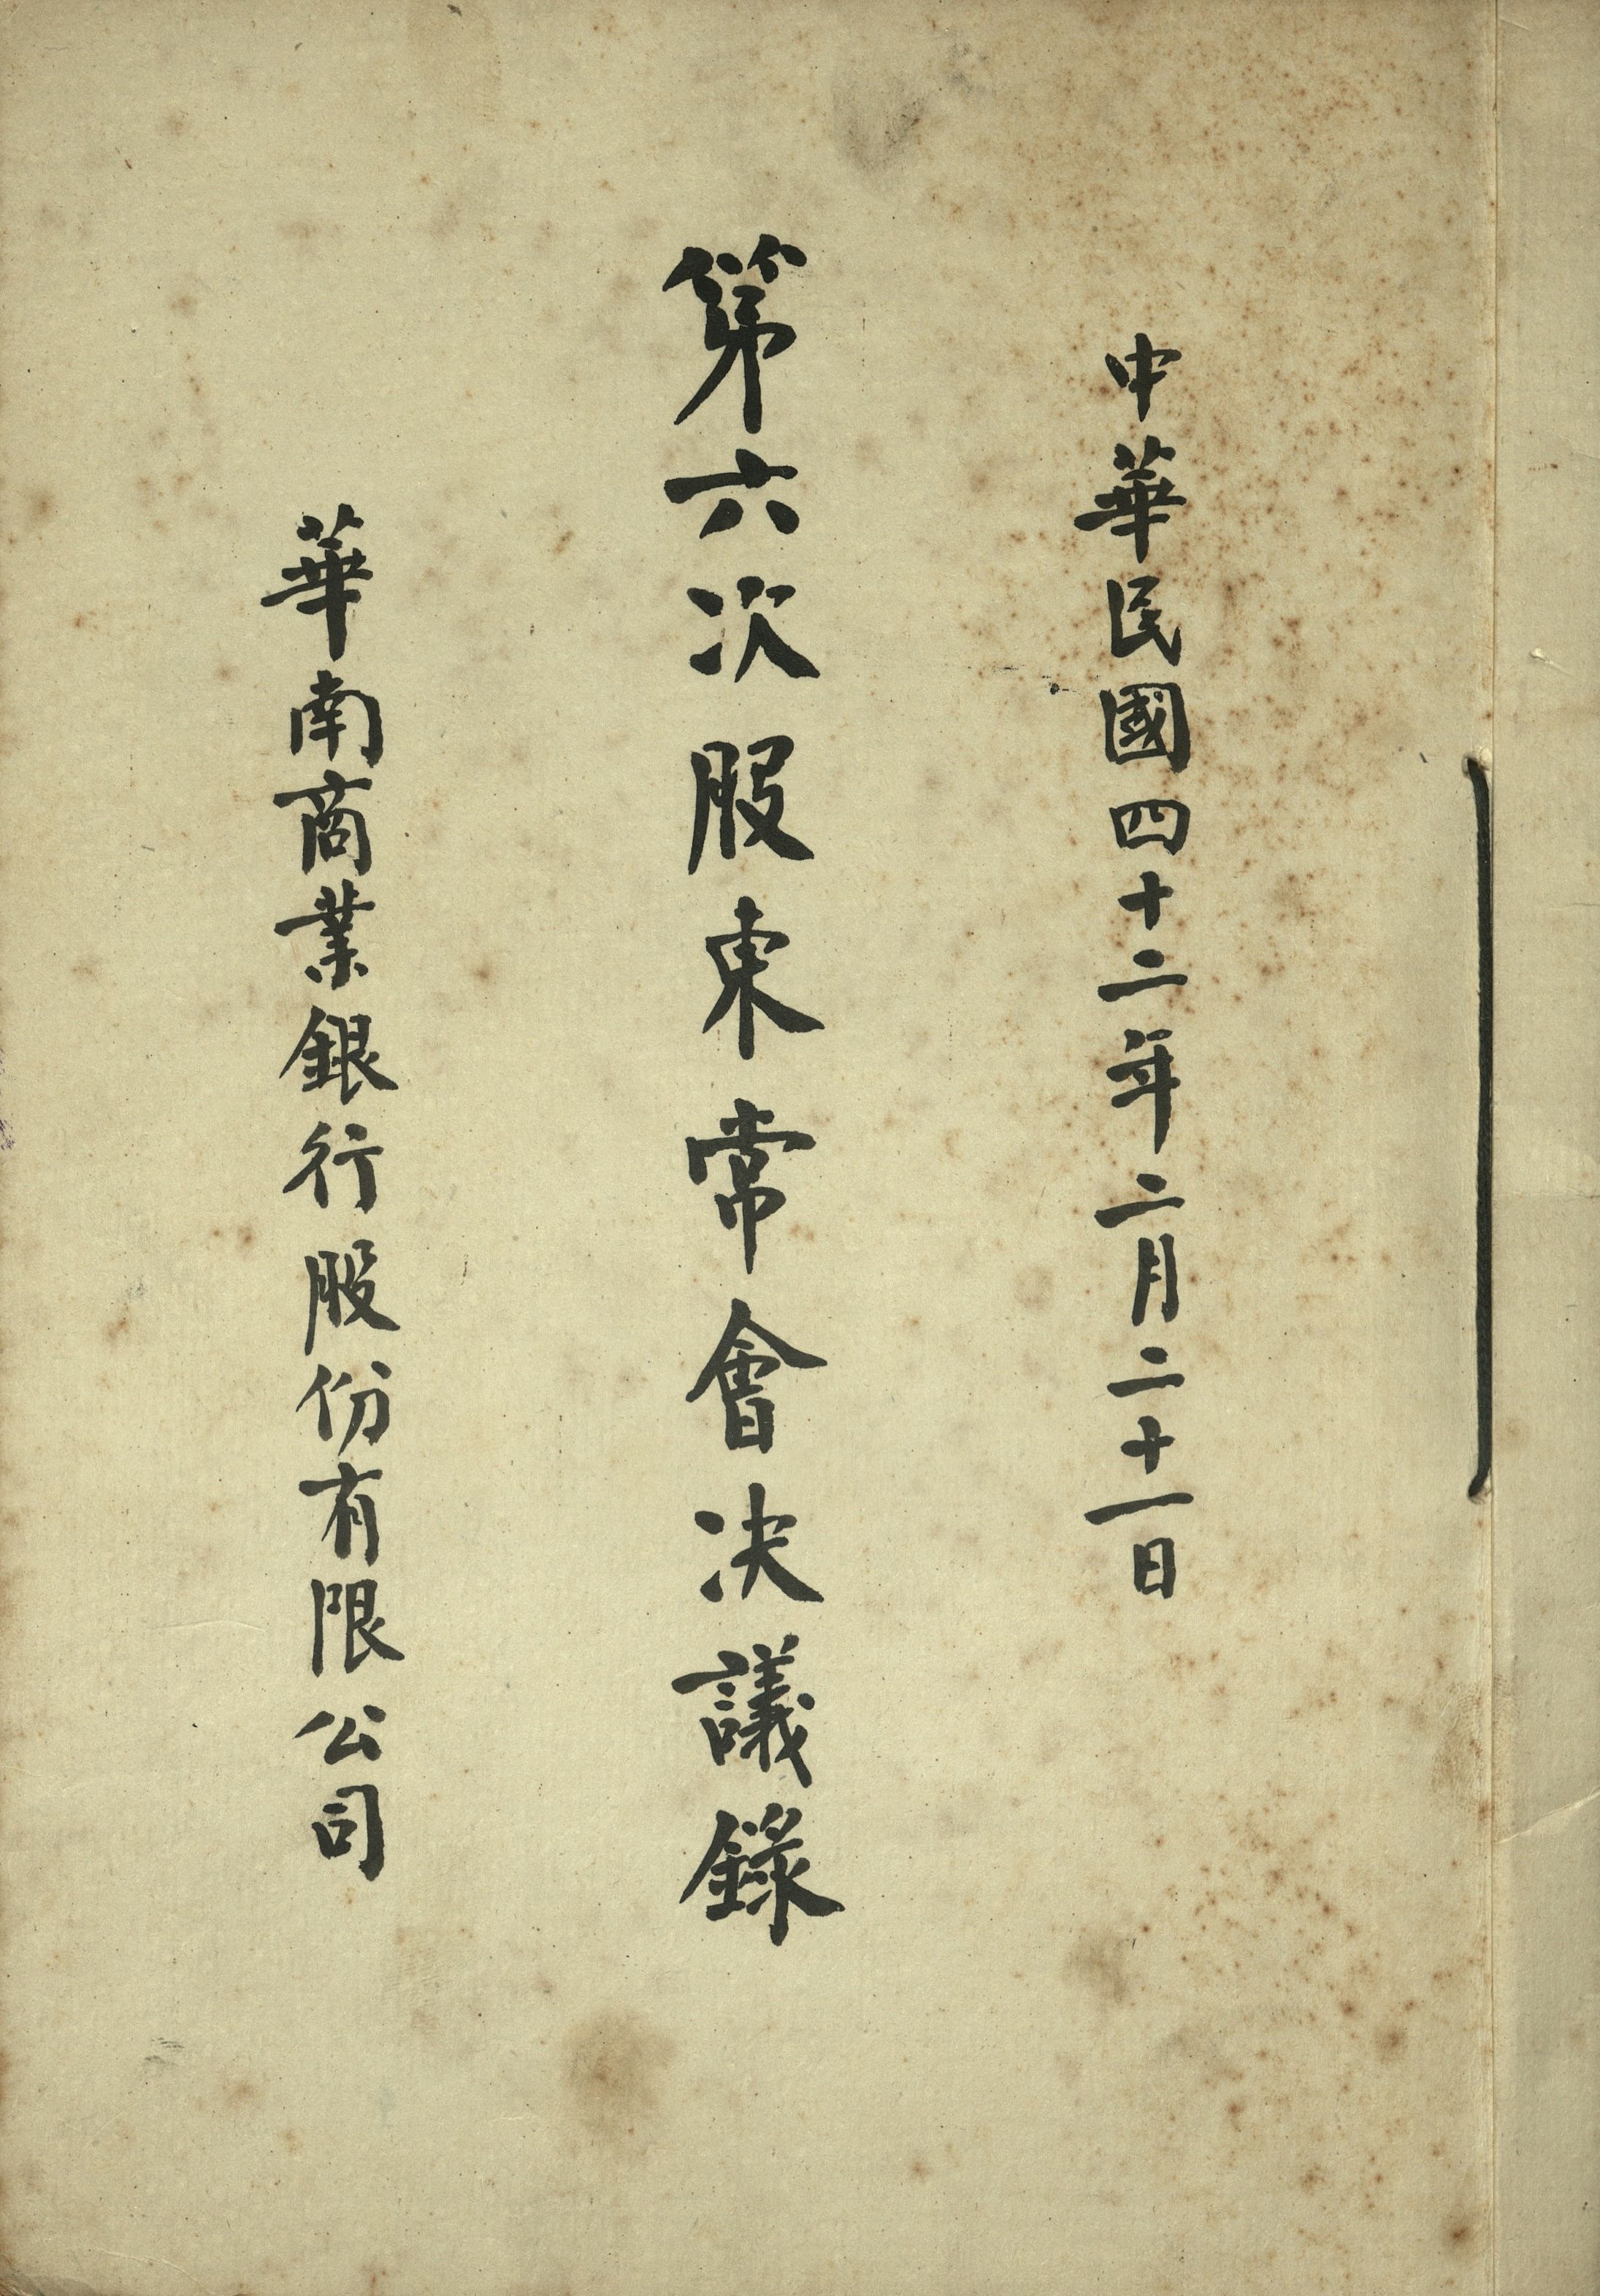 中華民國四十二年二月二十一日
第六次股東常會決議錄
華南商業銀行股份有限公司